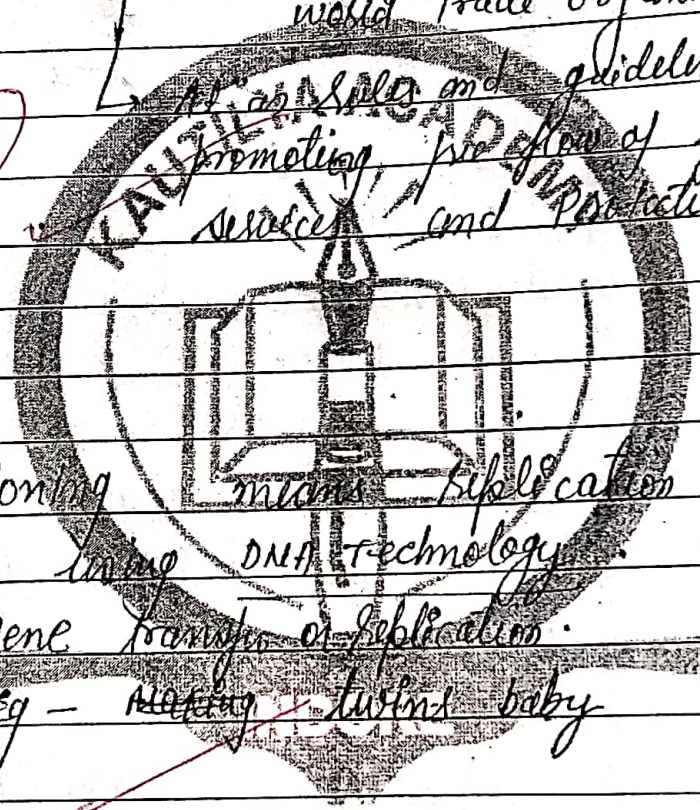 world Trade Organ
rules and guidel
promoting free flow of
services and Protecti
KAUTILYA ACADEMY
oning means Replication
using DNA Technology.
ene transfer or Replication.
eg - Making twins baby
INDORE